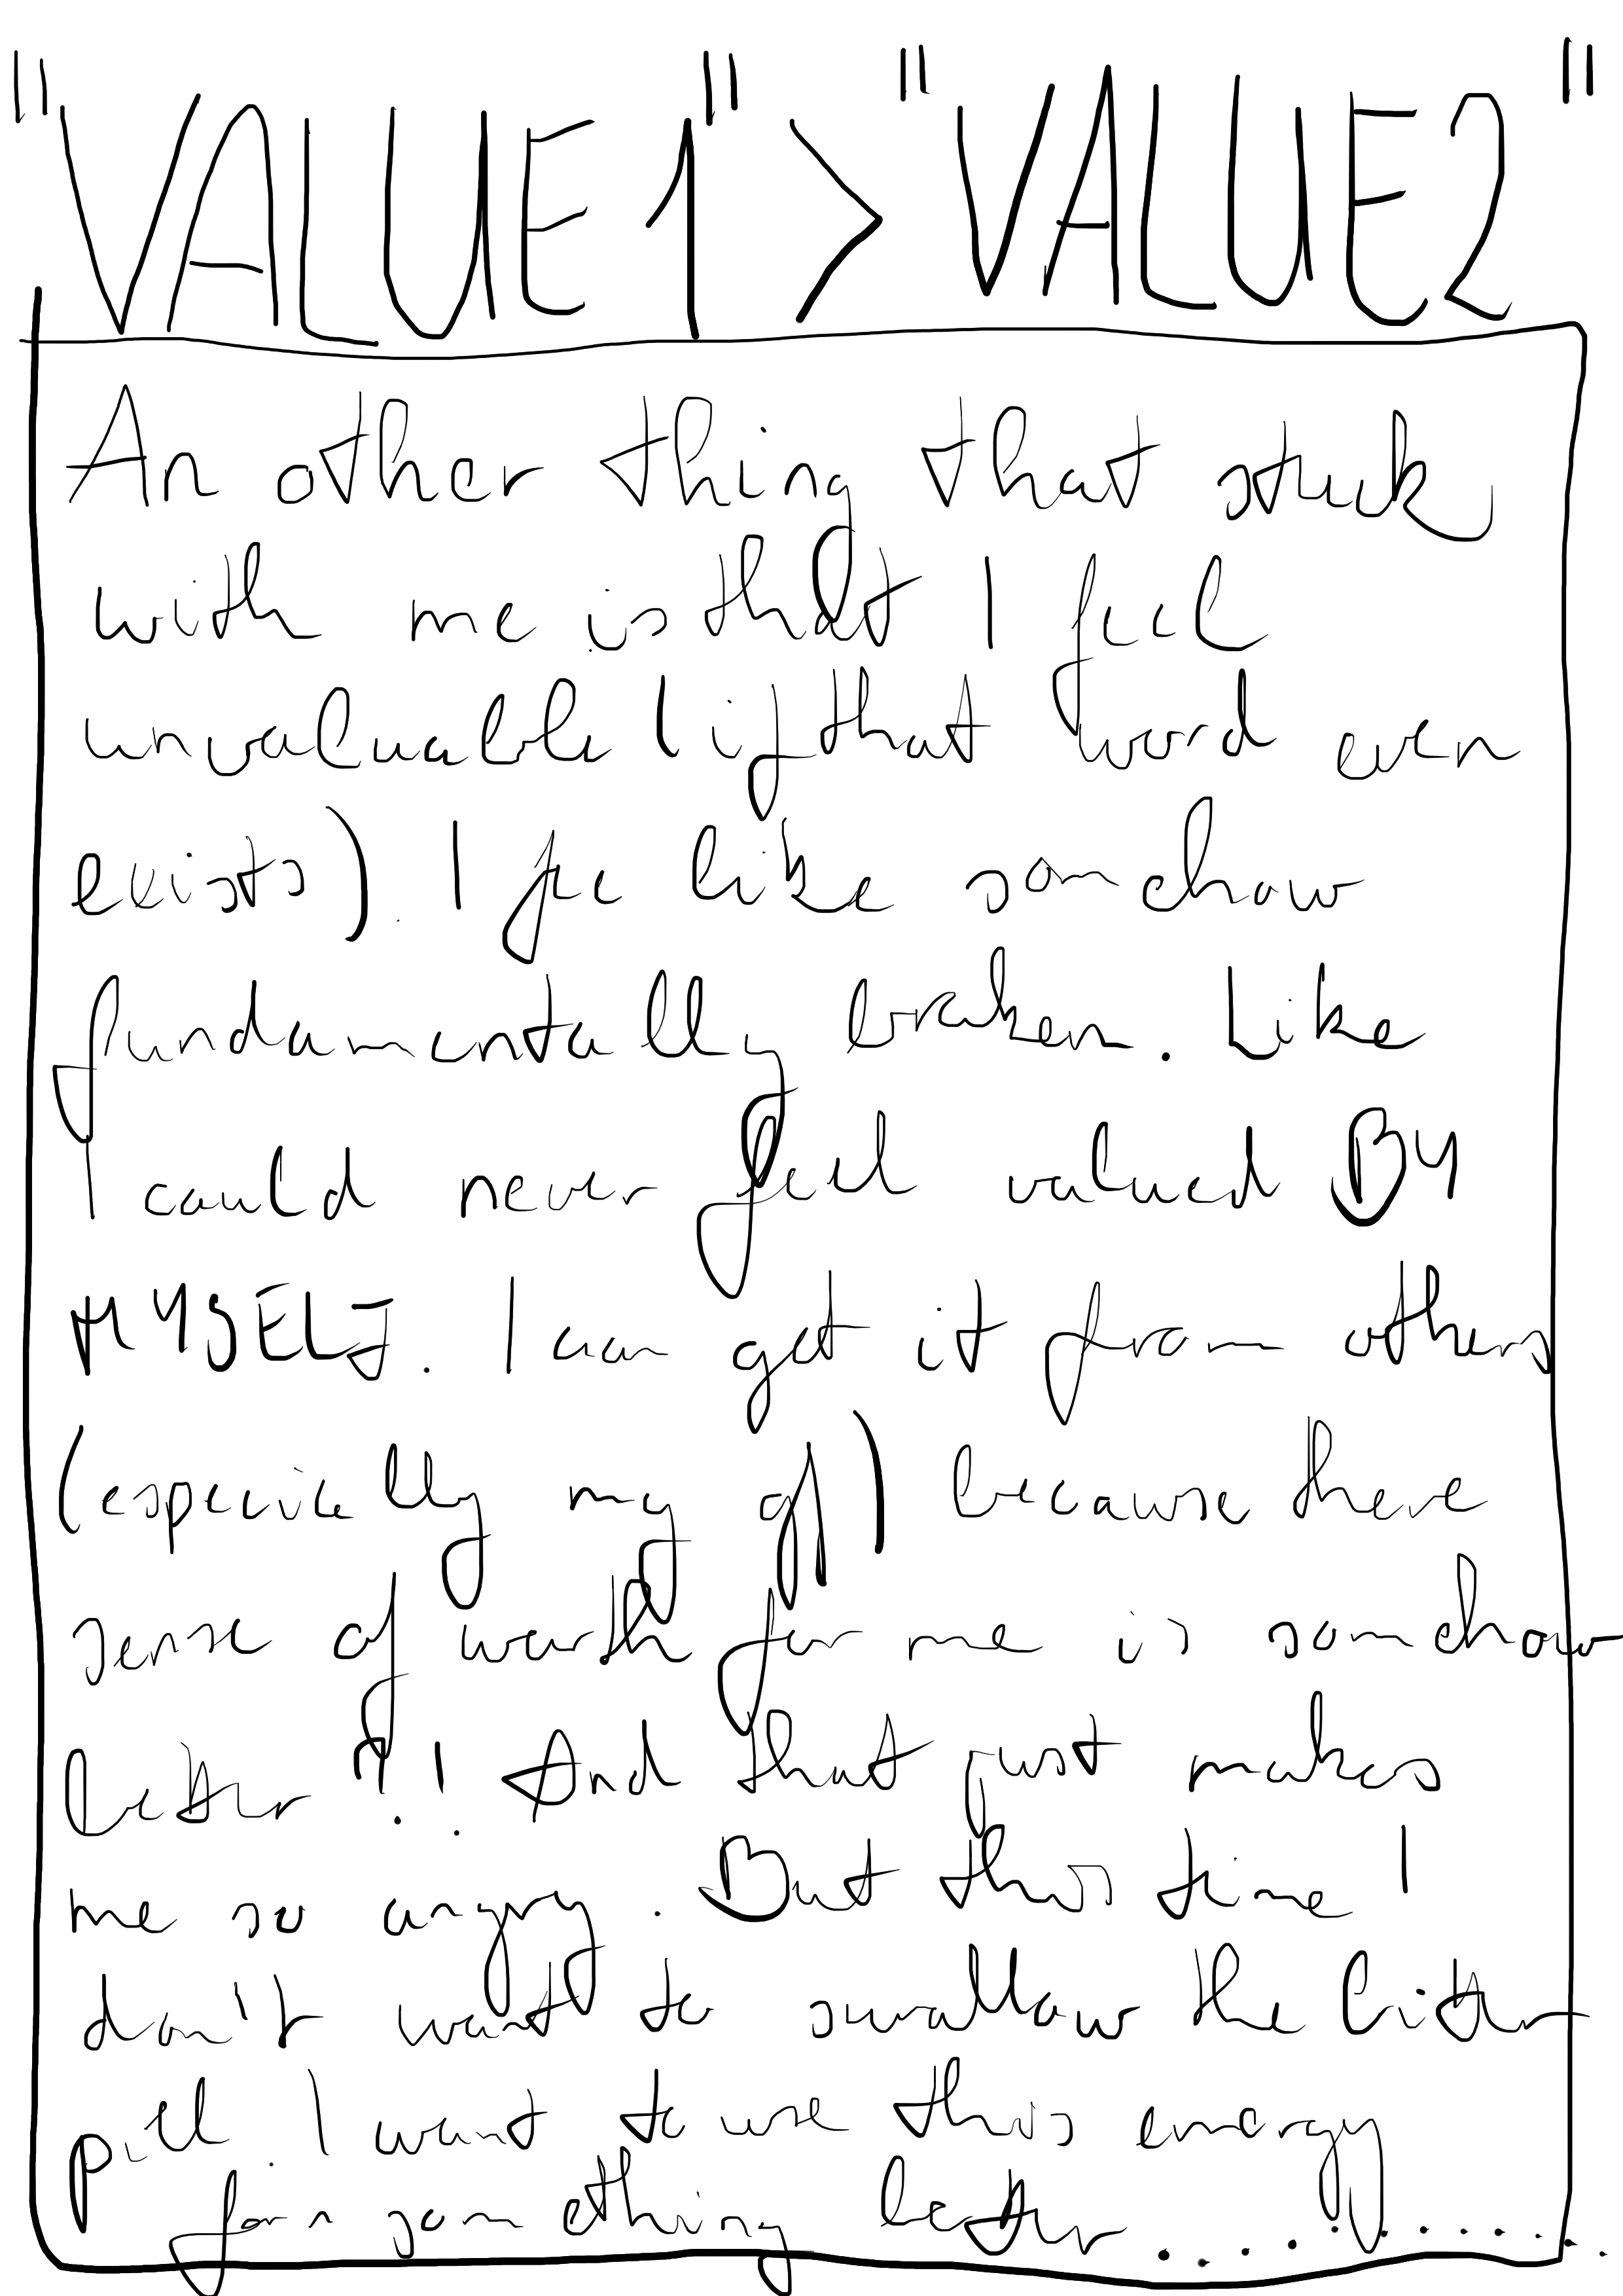 "VALUE 1" > "VALUE2"
An other thing that stuck
with me is that I feel
unvaluable (if that word even
exists). I fee like somehow
fundamentally broken. Like
I could never feel valued BY
MYSELF. I can get it from others
(especially my gf) because there
sense of worth for me is somehow
better?! And that just makes
me so angry. But this time I
don't want to swallow the bitter
pill. I want to use this energy
for something better..........